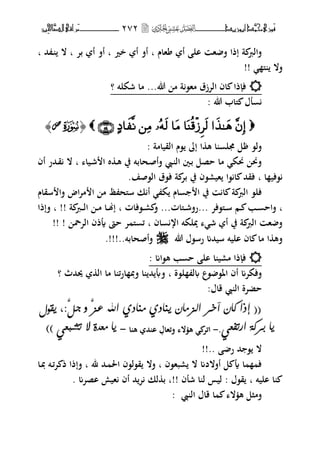 ـــــــــــــــــــــــــــــــ ٢٧٢ ـــــــــــــــــــــــــــــــ
والبركة إذا وضعت على أي طعام ، أو أي خير ، أو أي بر ، لا ينفد ،
ولا ينتهي !!
فإذا كان الرزق معونة من الله... ما شكله ؟
نسأل كتاب الله :
﴿ إِنَّ هَٰذَا لَرِزْقُنَا مَا لَهُۥ مِن نَّفَادٍ ﴾
ولو ظل مجلسنا هذا إلى يوم القيامة :
ونحن نحكي ما حصل بين النبي وأصحابه في هذه الأشياء ، لا نقدر أن
نوفيها ، فقد كانوا يعيشون في بركة فوق الوصف.
فلو البركة كانت في الأجسام يكفي أنك ستحفظ من الأمراض والأسقام
، واحسب كم ستوفر ...روشتات... وكشوفات ، إنها من البركة !! ، وإذا
وضعت البركة في أي شيء يملكه الإنسان ، تستمر حتى يأذن الرحمن ! !
وهذا ما كان عليه سيدنا رسول الله وأصحابه..!!!.
فإذا مشينا على حسب هوانا :
وفكرنا أن الموضوع بالفهلوة ، وبأيدينا ومهاراتنا ما الذي يحدث ؟
حضرة النبي قال:
(( إذا كان آخر الزمان ينادي منادي الله عزَّ وجلَّ:، يقول
يا بركة ارتفعي.- اتركي هؤلاء وتعالي عندي هنا - يا معدة لا تشبعي ))
لا يوجد رضى ..!!
فمهما يأكل أولادنا لا يشبعون ، ولا يقولون الحمد لله ، وإذا ذكرته بما
كنا عليه ، يقول : ليس لنا شأن !!، بذلك نريد أن نعيش عصرنا .
ومثل هؤلاء كما قال النبي :